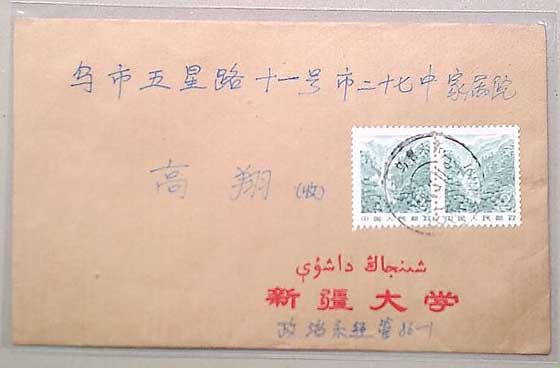 乌市五星路十一号市二十七中家属院
高 翔 (收)
中国人民邮政 中国人民邮政
شىنجاڭ داشۆې
新疆大学
政治系经管86-1